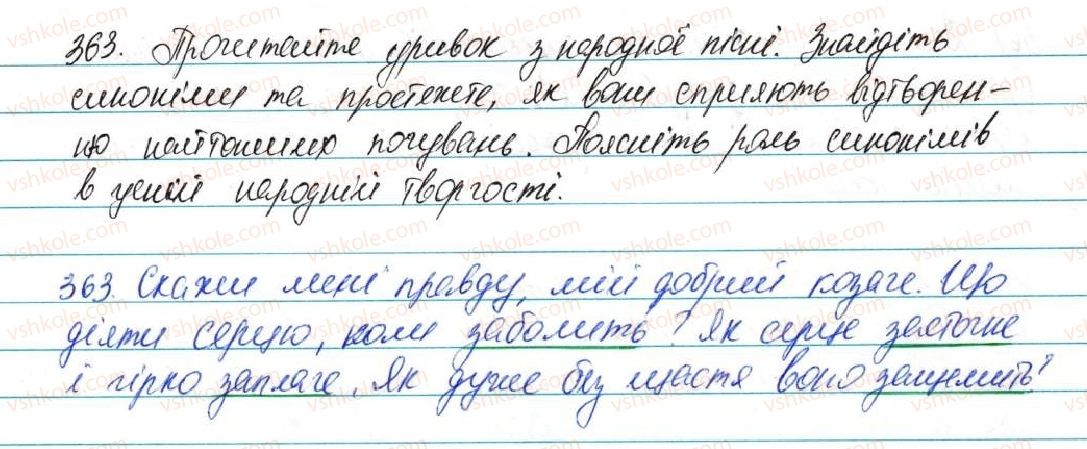 363. Прочитайте уривок з народної пісні. Знайдіть
синоніми та простежте, як вони сприяють відтворен-
ню найтонших почувань. Поясніть роль синонімів
в усній народній творчості.
363. Скажи мені правду, мій добрий козаче. Що
діяти серцю, коли заболить? Як серце застогне
і гірко заплаче, Як дуже без щастя воно защемить?